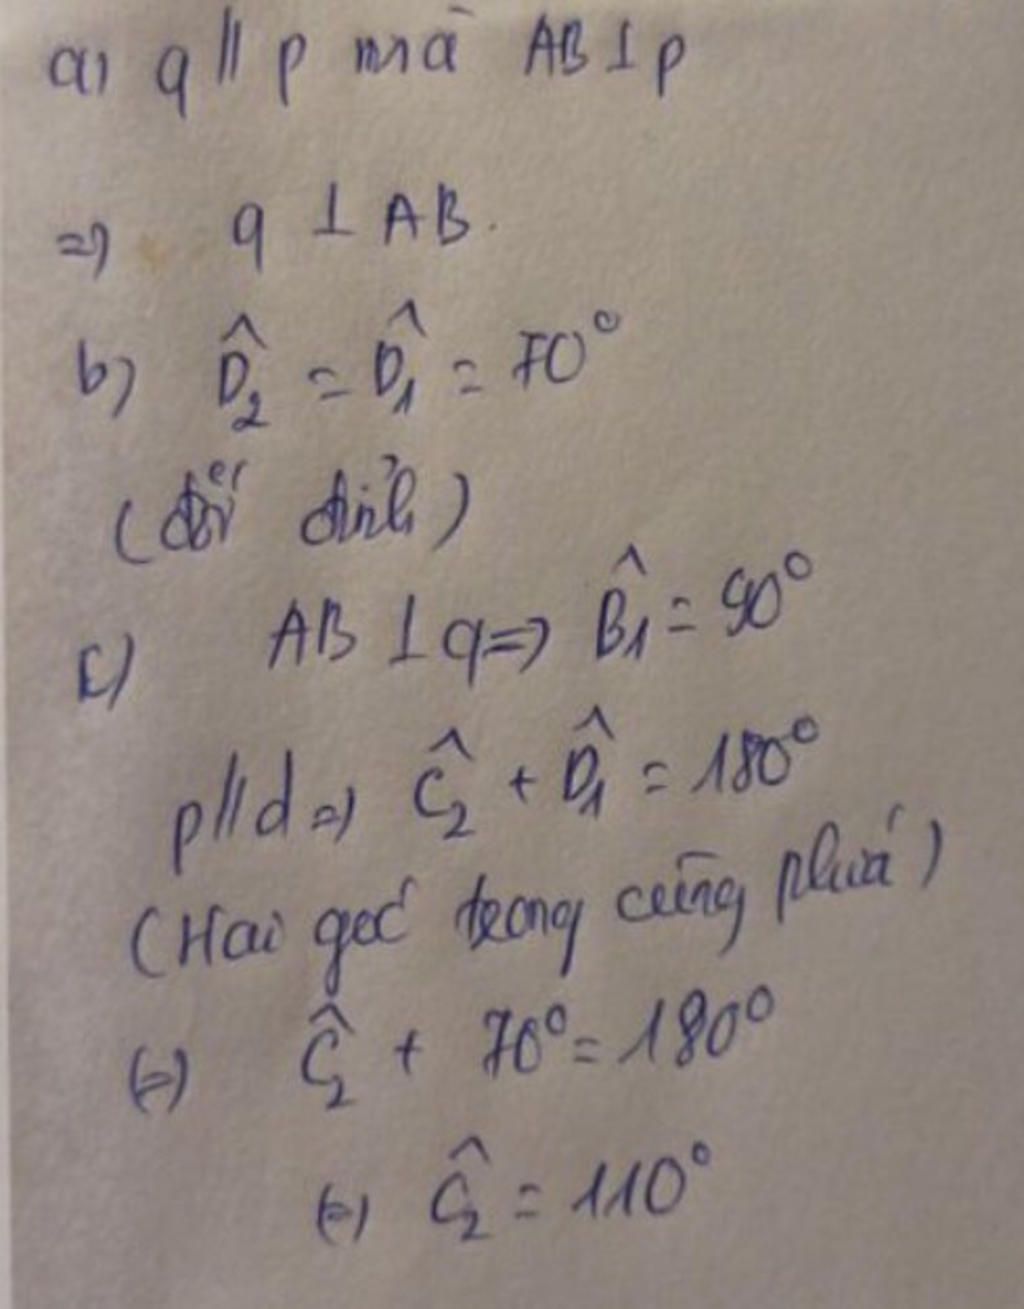 a) q // p mà AB ⊥ p
=> q ⊥ AB.
b) D̂₂ = D̂₁ = 70°
(đối đỉnh)
c) AB ⊥ q => B̂₁ = 90°
p // d => Ĉ₂ + D̂₁ = 180°
(Hai góc trong cùng phía)
(=) Ĉ₂ + 70° = 180°
(=) Ĉ₂ = 110°